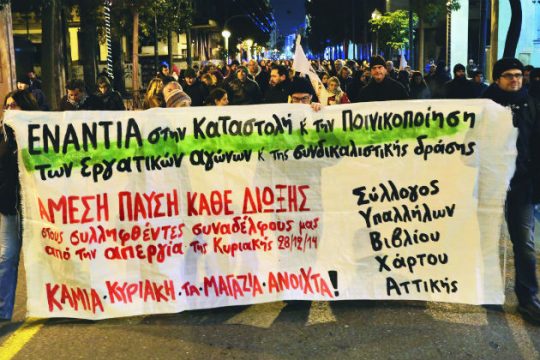 ΕΝΑΝΤΙΑ στην Καταστολή κ την Ποινικοποίηση
των εργατικών αγώνων κ της συνδικαλιστικής δράσης
ΑΜΕΣΗ ΠΑΥΣΗ ΚΑΘΕ ΔΙΩΞΗΣ
στους συλληφθέντες συναδέλφους μας
από την απεργία της Κυριακής 28/12/14
ΚΑΜΙΑ·ΚΥΡΙΑΚΗ·ΤΑ·ΜΑΓΑΖΙΑ·ΑΝΟΙΧΤΑ!
Σύλλογος
Υπαλλήλων
Βιβλίου
Χάρτου
Αττικής